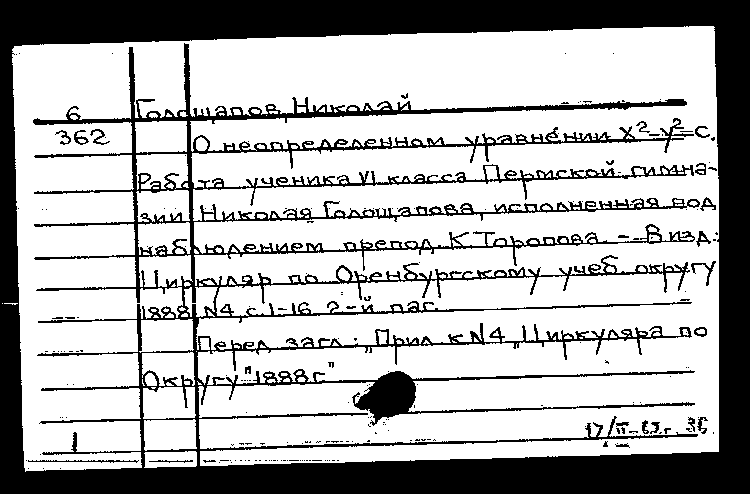 6 Голощапов, Николай
362 О неопределенном уравнении x²-y²=c.
Работа ученика VI класса Пермской гимна-
зии Николая Голощапова, исполненная под
наблюдением препод. К. Торопова. - В изд.:
Циркуляр по Оренбургскому учеб. округу
1888, N4, с. 1-16 2-й паг.
Перед загл.: „Прил. к N4 „Циркуляра по
Округу" 1888 г."
1